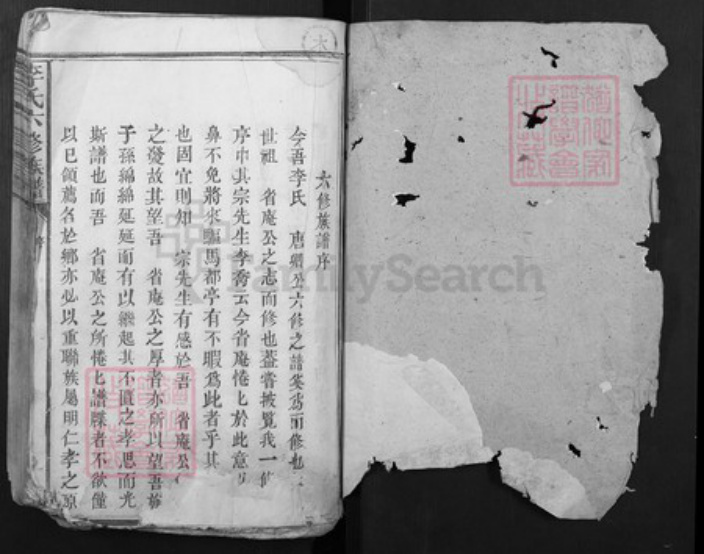 六修族譜序
今吾李氏 唐卿公六修之譜奚為而修也
世祖 省庵公之志而修也蓋嘗披覽我一
序中其宗先生李喬云今省庵惓匕於此意
鼻不免將來駟馬都亭有不暇為此者乎其
也固宜則知 宗先生有感於吾 省庵公
之發故其望吾 省庵公之厚者亦所以望吾
子孫綿綿延延而有以繼起其不匱之孝思而光
斯譜也而吾 省庵公之所惓匕譜牒者不欲僅
以已領薦名於鄉亦必以重聯族屬明仁孝之原
李氏六修族譜
FamilySearch